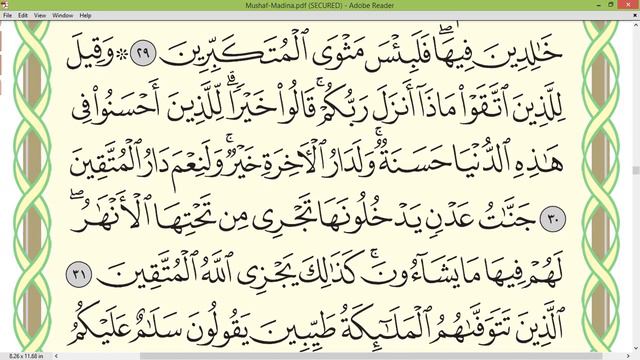 Mushaf-Madina.pdf (SECURED) - Adobe Reader
File Edit View Window Help
خَٰلِدِينَ فِيهَاۖ فَلَبِئۡسَ مَثۡوَى ٱلۡمُتَكَبِّرِينَ ٢٩ ۞ وَقِيلَ
لِلَّذِينَ ٱتَّقَوۡاْ مَاذَآ أَنزَلَ رَبُّكُمۡۚ قَالُواْ خَيۡرٗاۗ لِّلَّذِينَ أَحۡسَنُواْ فِي
هَٰذِهِ ٱلدُّنۡيَا حَسَنَةٞۚ وَلَدَارُ ٱلۡأٓخِرَةِ خَيۡرٞۚ وَلَنِعۡمَ دَارُ ٱلۡمُتَّقِينَ
٣٠ جَنَّٰتُ عَدۡنٖ يَدۡخُلُونَهَا تَجۡرِي مِن تَحۡتِهَا ٱلۡأَنۡهَٰرُۖ
لَهُمۡ فِيهَا مَا يَشَآءُونَۚ كَذَٰلِكَ يَجۡزِي ٱللَّهُ ٱلۡمُتَّقِينَ ٣١
ٱلَّذِينَ تَتَوَفَّىٰهُمُ ٱلۡمَلَٰٓئِكَةُ طَيِّبِينَ يَقُولُونَ سَلَٰمٌ عَلَيۡكُمُ
8.26 x 11.68 in